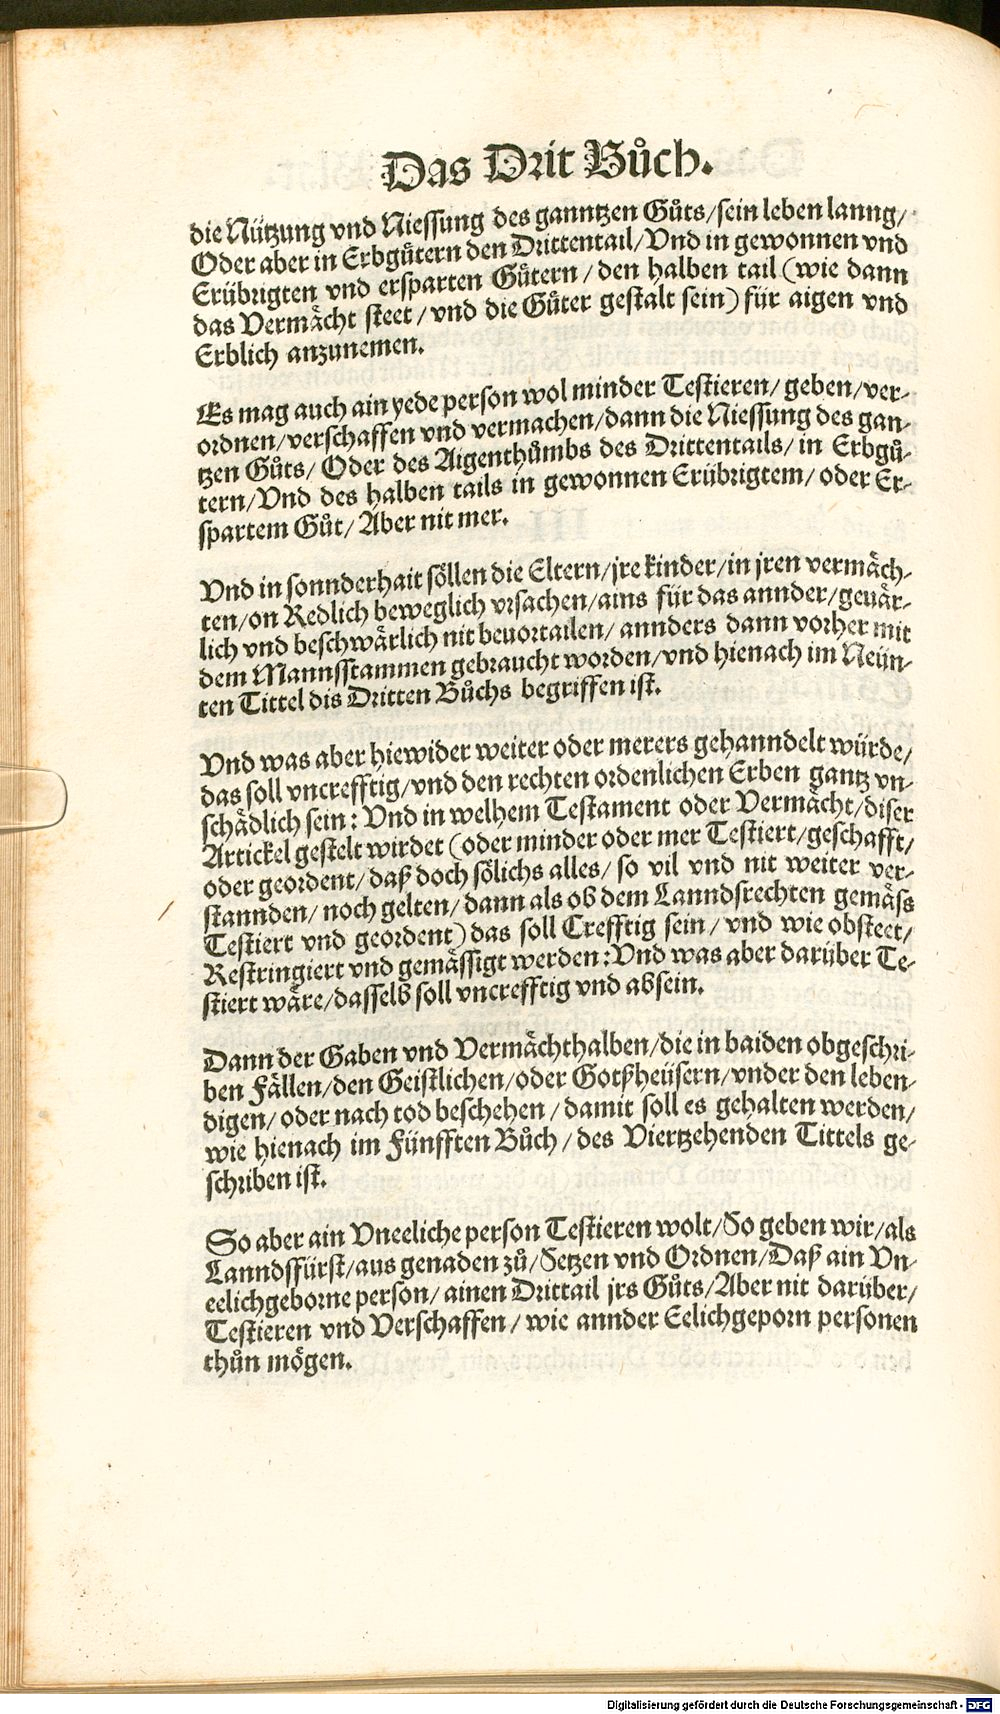 Das Drit Bůch.
die Nützung vnd Niessung des ganntzen Gůts/sein leben lanng/
Oder aber in Erbgůtern den Drittentail/Vnd in gewonnen vnd
Erübrigten vnd ersparten Gůtern/den halben tail (wie dann
das Vermächt steet/vnd die Gůter gestalt sein) für aigen vnd
Erblich anzunemen.
Es mag auch ain yede person wol minder Testieren/geben/ver-
ordnen/verschaffen vnd vermachen/dann die Niessung des gan-
tzen Gůts/Oder des Aigenthůmbs des Drittentails/in Erbgů-
tern/Vnd des halben tails in gewonnen Erübrigtem/oder Er-
spartem Gůt/Aber nit mer.
Vnd in sonnderhait söllen die Eltern/jre kinder/in jren vermäch-
ten/on Redlich beweglich vrsachen/ains für das annder/geuär-
lich vnd beschwärlich nit beuortailen/annders dann vorher mit
dem Mannsstammen gebraucht worden/vnd hienach im Neün-
ten Tittel dis Dritten Bůchs begriffen ist.
Vnd was aber hiewider weiter oder merers gehanndelt würde/
das soll vncrefftig/vnd den rechten ordenlichen Erben gantz vn-
schädlich sein: Vnd in welhem Testament oder Vermächt/diser
Artickel gestelt wirdet (oder minder oder mer Testiert/geschafft/
oder geordent/daß doch sölichs alles/so vil vnd nit weiter ver-
stannden/noch gelten/dann als ob dem Lanndsrechten gemäss
Testiert vnd geordent) das soll Crefftig sein/vnd wie obsteet/
Restringiert vnd gemässigt werden: Vnd was aber darüber Te-
stiert wäre/dasselb soll vncrefftig vnd absein.
Dann der Gaben vnd Vermächthalben/die in baiden obgeschri-
ben Fällen/den Geistlichen/oder Gotßheüsern/vnder den leben-
digen/oder nach tod beschehen/damit soll es gehalten werden/
wie hienach im Fünfften Bůch/des Viertzehenden Tittels ge-
schriben ist.
So aber ain Vneeliche person Testieren wolt/So geben wir/als
Lanndsfürst/aus genaden zů/Setzen vnd Ordnen/Daß ain Vn-
eelichgeborne person/ainen Drittail jrs Gůts/Aber nit darüber/
Testieren vnd Verschaffen/wie annder Eelichgeporn personen
thůn mögen.
Digitalisierung gefördert durch die Deutsche Forschungsgemeinschaft - DFG